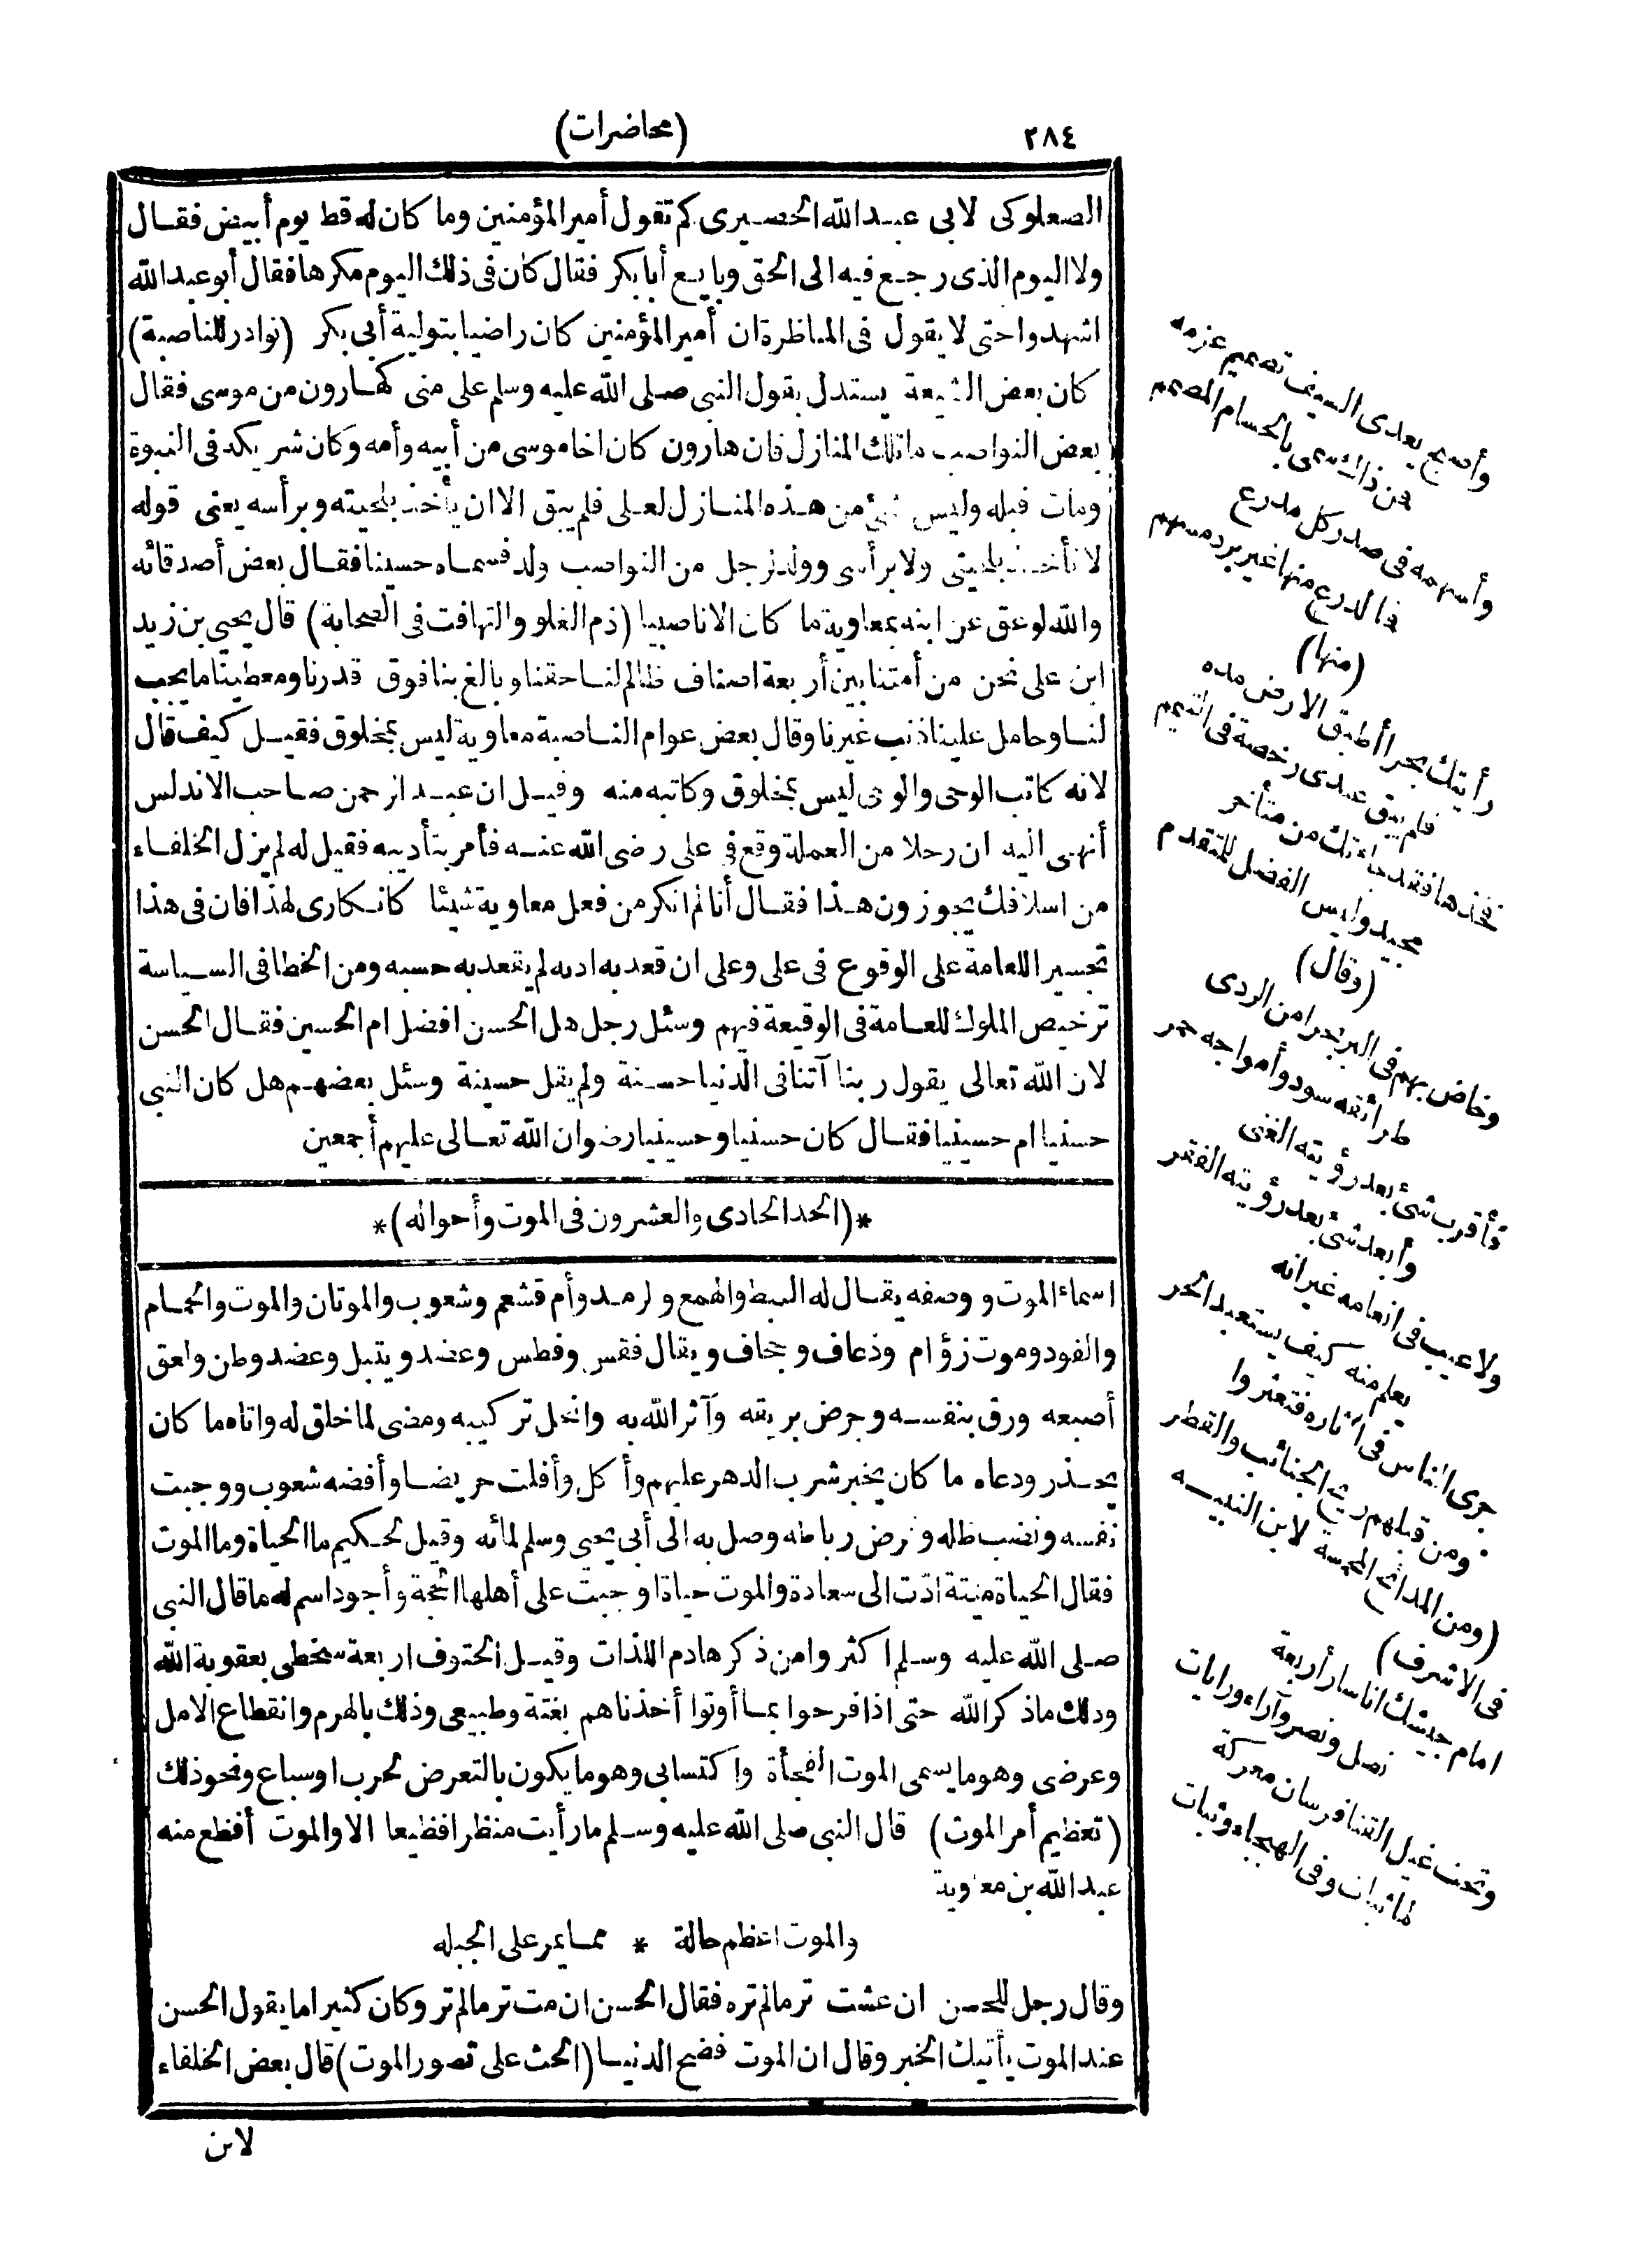 ٢٨٤
(محاضرات)
الصعلوكى لابى عبد الله الحصيرى كم تقول أمير المؤمنين وما كان له قط يوم أبيض فقال
ولا اليوم الذى رجع فيه الى الحق وبايع أبا بكر فقال كان فى ذلك اليوم مكرها فقال أبو عبد الله
اشهدوا حتى لا يقول فى المناظرة ان أمير المؤمنين كان راضيا بتولية أبى بكر (نوادر للناصبة)
كان بعض الشيعة يستدل بقول النبى صلى الله عليه وسلم على منى كهارون من موسى فقال
بعض النواصب ما تلك المنازل فان هارون كان اخا موسى من أبيه وأمه وكان شريكه فى النبوة
ومات قبله وليس شئ من هذه المنازل لعلى فلم يبق الا ان يأخذ بلحيته وبرأسه يعنى قوله
لا تأخذ بلحيتى ولا برأسى وولد لرجل من النواصب ولد فسماه حسينا فقال بعض أصدقائه
والله لو عق عن ابنه بمعاوية ما كان الا ناصبيا (ذم الغلو والتهافت فى الصحابة) قال يحيى بن زيد
ابن على نحن من أمتنا بين أربعة اصناف ظالم لنا حقنا وبالغ بنا فوق قدرنا ومعطينا ما يجب
لنا وحامل علينا ذنب غيرنا وقال بعض عوام الناصبة معاوية ليس بمخلوق فقيل كيف قال
لانه كاتب الوحى والوحى ليس بمخلوق وكاتبه منه وقيل ان عبد الرحمن صاحب الاندلس
أنهى اليه ان رجلا من العملة وقع فى على رضى الله عنه فأمر بتأديبه فقيل له لم يزل الخلفاء
من اسلافك يجوزون هذا فقال أنا لم انكر من فعل معاوية شيئا كانكارى لهذا فان فى هذا
تجسيرا للعامة على الوقوع فى على وعلى ان قعد به ادبه لم يقعد به حسبه ومن الخطا فى السياسة
ترخيص الملوك للعامة فى الوقيعة فيهم وسئل رجل هل الحسن افضل ام الحسين فقال الحسن
لان الله تعالى يقول ربنا آتنا فى الدنيا حسنة ولم يقل حسينة وسئل بعضهم هل كان النبى
حسنيا ام حسينيا فقال كان حسنيا وحسينيا رضوان الله تعالى عليهم أجمعين
*(الحد الحادى والعشرون فى الموت وأحواله)*
اسماء الموت ووصفه يقال له السط والهمع والرمد وأم قشعم وشعوب والموتان والموت والحمام
والفود وموت زؤام وذعاف وجحاف ويقال فقس وفطس وعضد ويتبل وعضد وطن ولعق
أصبعه ورق بنفسه وجرض بريقه وآثر الله به وانحل تركيبه ومضى لما خلق له واتاه ما كان
يحذر ودعاه ما كان يخبر شرب الدهر عليهم وأكل وأفلت حريضا وأفضه شعوب ووجبت
نفسه ونضب ظله وقرض رباطه وصل به الى أبى يحيى وسلم لمائه وقيل لحكيم ما الحياة وما الموت
فقال الحياة ميتة ادت الى سعادة والموت حياة اوجبت على أهلها الحجة وأجود اسم له ما قال النبى
صلى الله عليه وسلم اكثروا من ذكر هادم اللذات وقيل الحتوف اربعة سخطى بعقوبة الله
وذلك ما ذكر الله حتى اذا فرحوا بما أوتوا أخذناهم بغتة وطبيعى وذلك بالهرم وانقطاع الامل
وعرضى وهو ما يسمى الموت الفجأة واكتسابى وهو ما يكون بالتعرض لحرب او سباع ونحو ذلك
(تعظيم أمر الموت) قال النبى صلى الله عليه وسلم ما رأيت منظرا فظيعا الا والموت أفظع منه
عبد الله بن معاوية
والموت اعظم حالة * مما يمر على الجبله
وقال رجل للحسن ان عشت تر ما لم تره فقال الحسن ان مت تر ما لم تر وكان كثيرا ما يقول الحسن
عند الموت يأتيك الخبر وقال ان الموت فضح الدنيا (الحث على تصور الموت) قال بعض الخلفاء
لابن
وأصبح يعدى السيف تصميم عزمه
فمن ذاك سمى بالحسام المصمم
وأسهمه فى صدر كل مدرع
فما الدرع منها غير برد مسهم
(منها)
رأيتك بحرا أطبق الارض مده
فلم يبق عندى رخصة فى التيمم
فخذها فقد جاءتك من متأخر
مجيد وليس الفضل للمتقدم
(وقال)
وخاض بهم فى البر بحرا من الردى
طرائقه سود وأمواجه حمر
فأقرب شئ بعد رؤيته الغنى
وأبعد شئ بعد رؤيته الفقر
ولا عيب فى انعامه غير انه
يعلم منه كيف يستعبد الحر
جرى الناس فى آثاره فتعثروا
ومن قبلهم ريح الجنائب والقطر
(ومن المدائح الخمسة لابن النبيه
فى الاشرف)
امام جيشك اناسار أربعة
نصل ونصر وآراء ورايات
وتحت غيل القنا فرسان معركة
لها ثبات وفى الهيجاء وثبات